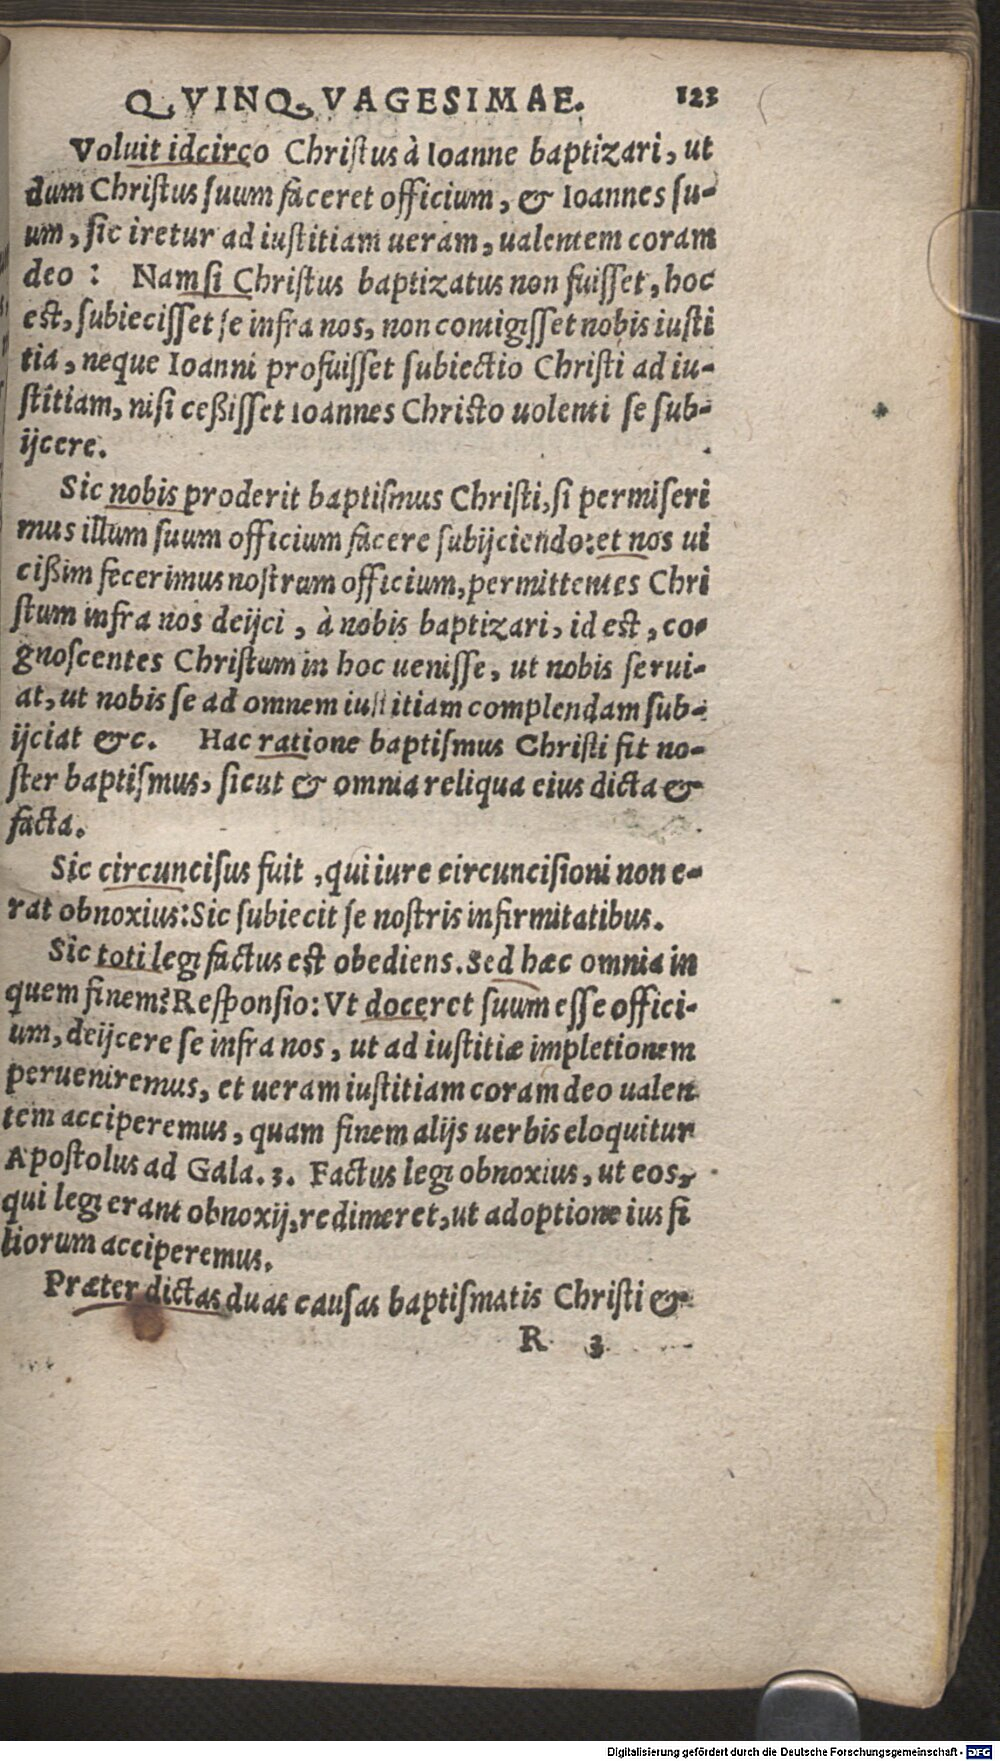 QVINQVAGESIMAE. 123
Voluit idcirco Chriſtus à Ioanne baptizari, ut
dum Chriſtus ſuum faceret officium, & Ioannes ſu-
um, ſic iretur ad iuſtitiam ueram, ualentem coram
deo : Nam ſi Chriſtus baptizatus non fuiſſet, hoc
eſt, ſubieciſſet ſe infra nos, non contigiſſet nobis iuſti
tia, neque Ioanni profuiſſet ſubiectio Chriſti ad iu-
ſtitiam, niſi ceßiſſet Ioannes Chriſto uolenti ſe ſub-
ijcere.
Sic nobis proderit baptiſmus Chriſti, ſi permiſeri
mus illum ſuum officium facere ſubijciendo: et nos ui
cißim fecerimus noſtrum officium, permittentes Chri
ſtum infra nos deijci, à nobis baptizari, id eſt, co-
gnoſcentes Chriſtum in hoc ueniſſe, ut nobis ſerui-
at, ut nobis ſe ad omnem iuſtitiam complendam ſub-
ijciat &c. Hac ratione baptiſmus Chriſti fit no-
ſter baptiſmus, ſicut & omnia reliqua eius dicta &
facta.
Sic circunciſus fuit, qui iure circunciſioni non e-
rat obnoxius: Sic ſubiecit ſe noſtris infirmitatibus.
Sic toti legi factus eſt obediens. Sed hæc omnia in
quem finem? Reſponſio: Vt doceret ſuum eſſe offici-
um, deijcere ſe infra nos, ut ad iuſtitiæ impletionem
perueniremus, et ueram iuſtitiam coram deo ualen
tem acciperemus, quam finem alijs uerbis eloquitur
Apoſtolus ad Gala. 3. Factus legi obnoxius, ut eos,
qui legi erant obnoxij, redimeret, ut adoptione ius fi
liorum acciperemus.
Præter dictas duas cauſas baptiſmatis Chriſti &
R 3
Digitalisierung gefördert durch die Deutsche Forschungsgemeinschaft - DFG